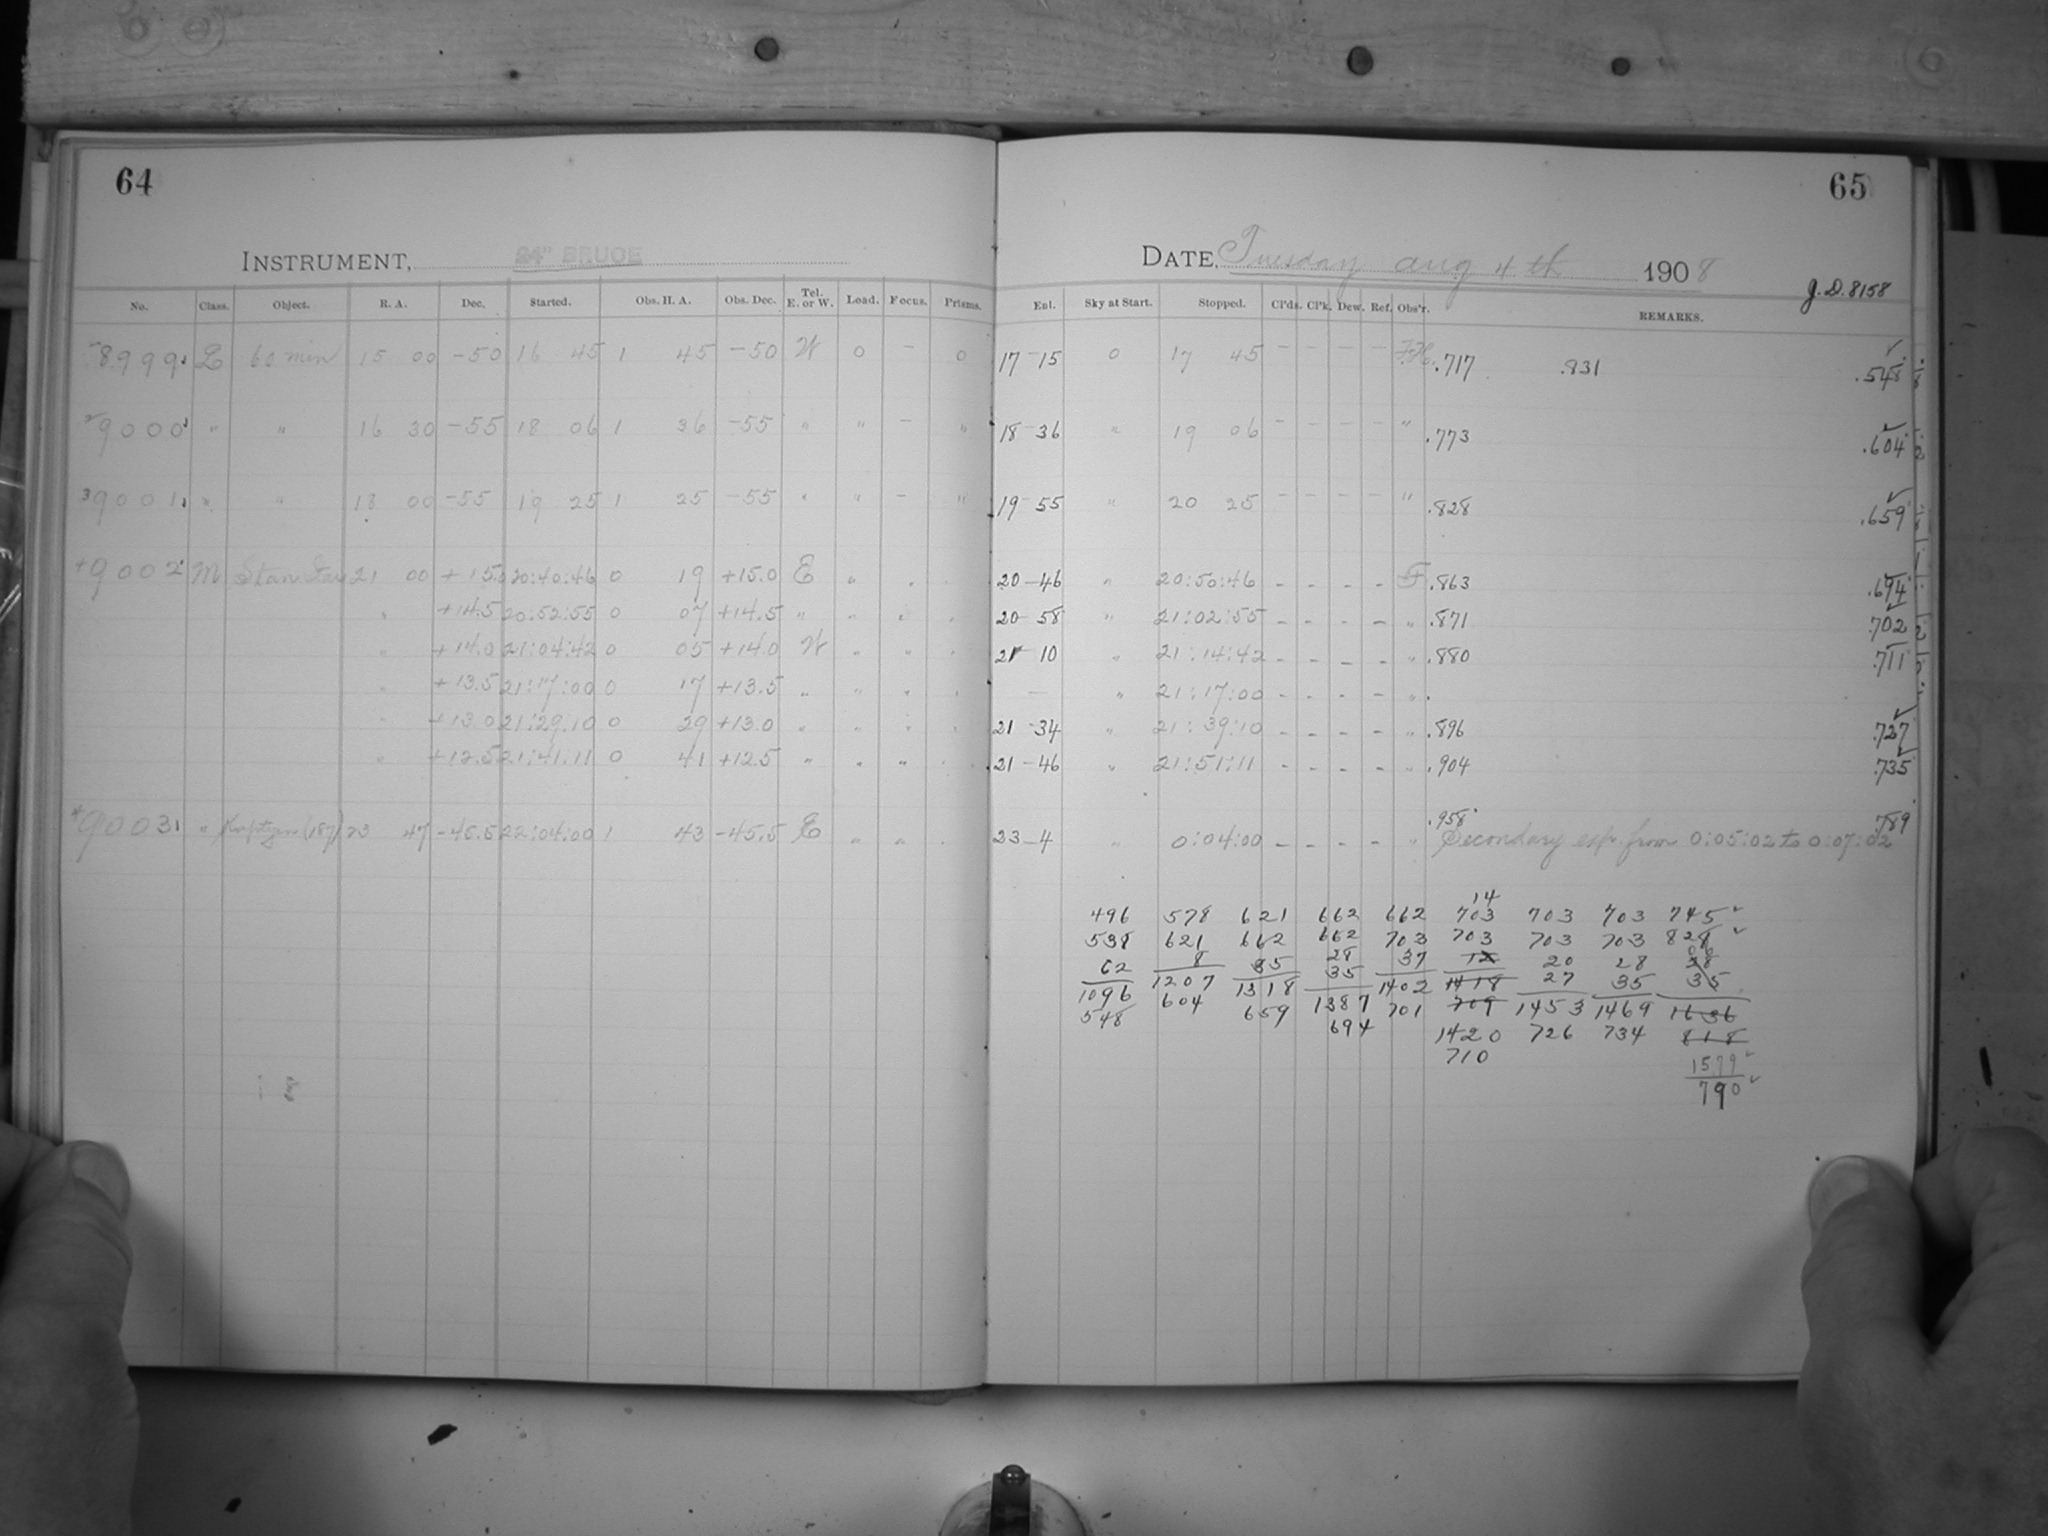 64
INSTRUMENT, 24" BRUCE
No. Class. Object. R. A. Dec. Started. Obs. H. A. Obs. Dec. Tel. E. or W. Load. Focus. Prisms.
8999 L 60 min 15 00 -50 16 45 1 45 -50 W 0 - 0
9000 " " 16 30 -55 18 06 1 36 -55 " " - "
9001 " " 18 00 -55 19 25 1 25 -55 " " - "
9002 M Stan 21 00 +15.0 20:40:46 0 19 +15.0 E "
" +14.5 20:52:55 0 07 +14.5 " "
" +14.0 21:04:42 0 05 +14.0 W " "
" +13.5 21:17:00 0 17 +13.5 " " "
" +13.0 21:29:10 0 29 +13.0 " " "
" +12.5 21:41:11 0 41 +12.5 " " "
9003 " Kapteyn (187) 23 47 -45.5 22:04:00 1 43 -45.5 E " "
65
DATE, Tuesday Aug 4th 1908
J.D. 8158
Enl. Sky at Start. Stopped. Cl'ds. Cl'k. Dew. Ref. Obs'r. REMARKS.
17-15 0 17 45 - - - - .717 .831 .548
18-36 " 19 06 - - - - " .773 .604
19-55 " 20 25 - - - - " .828 .659
20-46 " 20:50:46 - - - - F .863 .694
20-58 " 21:02:55 - - - - " .871 .702
21-10 " 21:14:42 - - - - " .880 .711
- " 21:17:00 - - - - "
21-34 " 21:39:10 - - - - " .896 .727
21-46 " 21:51:11 - - - - " .904 .735
.958 .789
23-4 " 0:04:00 - - - - " Secondary exp. from 0:05:02 to 0:07:02
14
496 578 621 662 662 703 703 703 745
538 621 662 662 703 703 703 703 828
62 8 35 28 37 12 20 28 28
35 27 35 35
1096 1207 1318 1387 1402 1418 1453 1469 1636
548 604 659 694 701 709 726 734 818
1420
710
1579
790